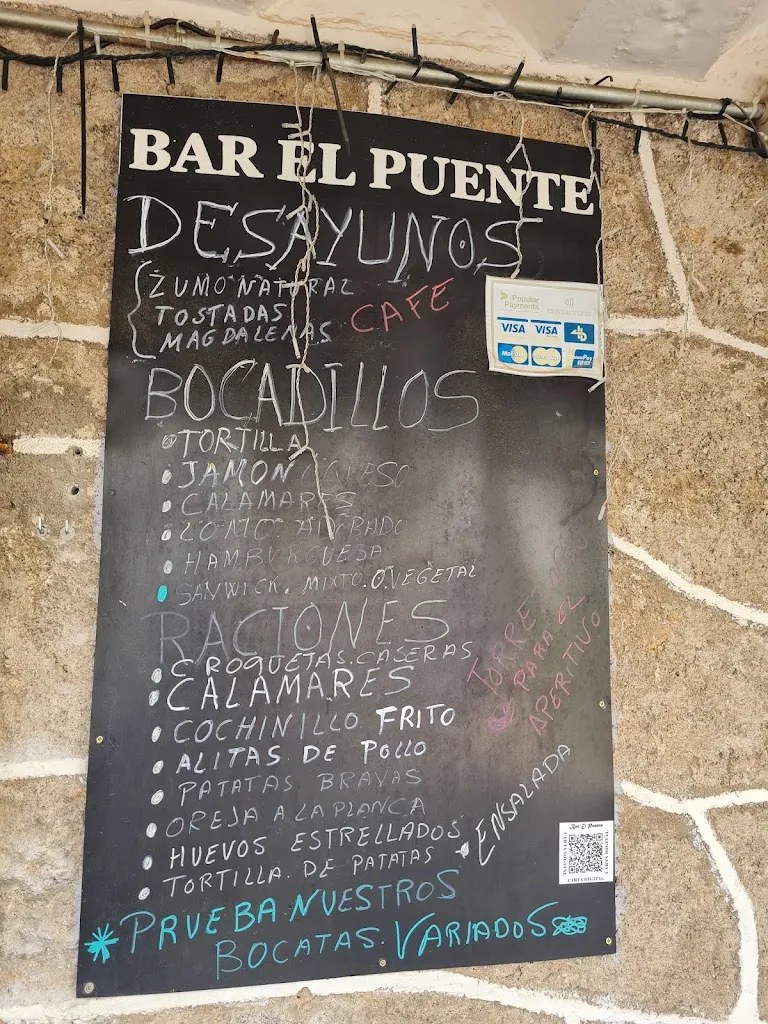 BAR EL PUENTE
DESAYUNOS
ZUMO NATURAL
TOSTADAS
MAGDALENAS
CAFE
Popular
Payments
CONTACTLESS
VISA VISA
BOCADILLOS
TORTILLA
JAMON O QUESO
CALAMARES
LOMO. ADOBADO
HAMBURGUESA
SANWICK. MIXTO. O. VEGETAL
RACIONES
CROQUETAS. CASERAS
CALAMARES
COCHINILLO FRITO
ALITAS DE POLLO
PATATAS BRAVAS
OREJA A LA PLANCA
HUEVOS ESTRELLADOS
TORTILLA. DE PATATAS
ENSALADA
PARA EL
APERITIVO
Bar El Puente
CARTA DIGITAL
CARTA DIGITAL
CARTA DIGITAL
PRUEBA. NUESTROS
BOCATAS. VARIADOS